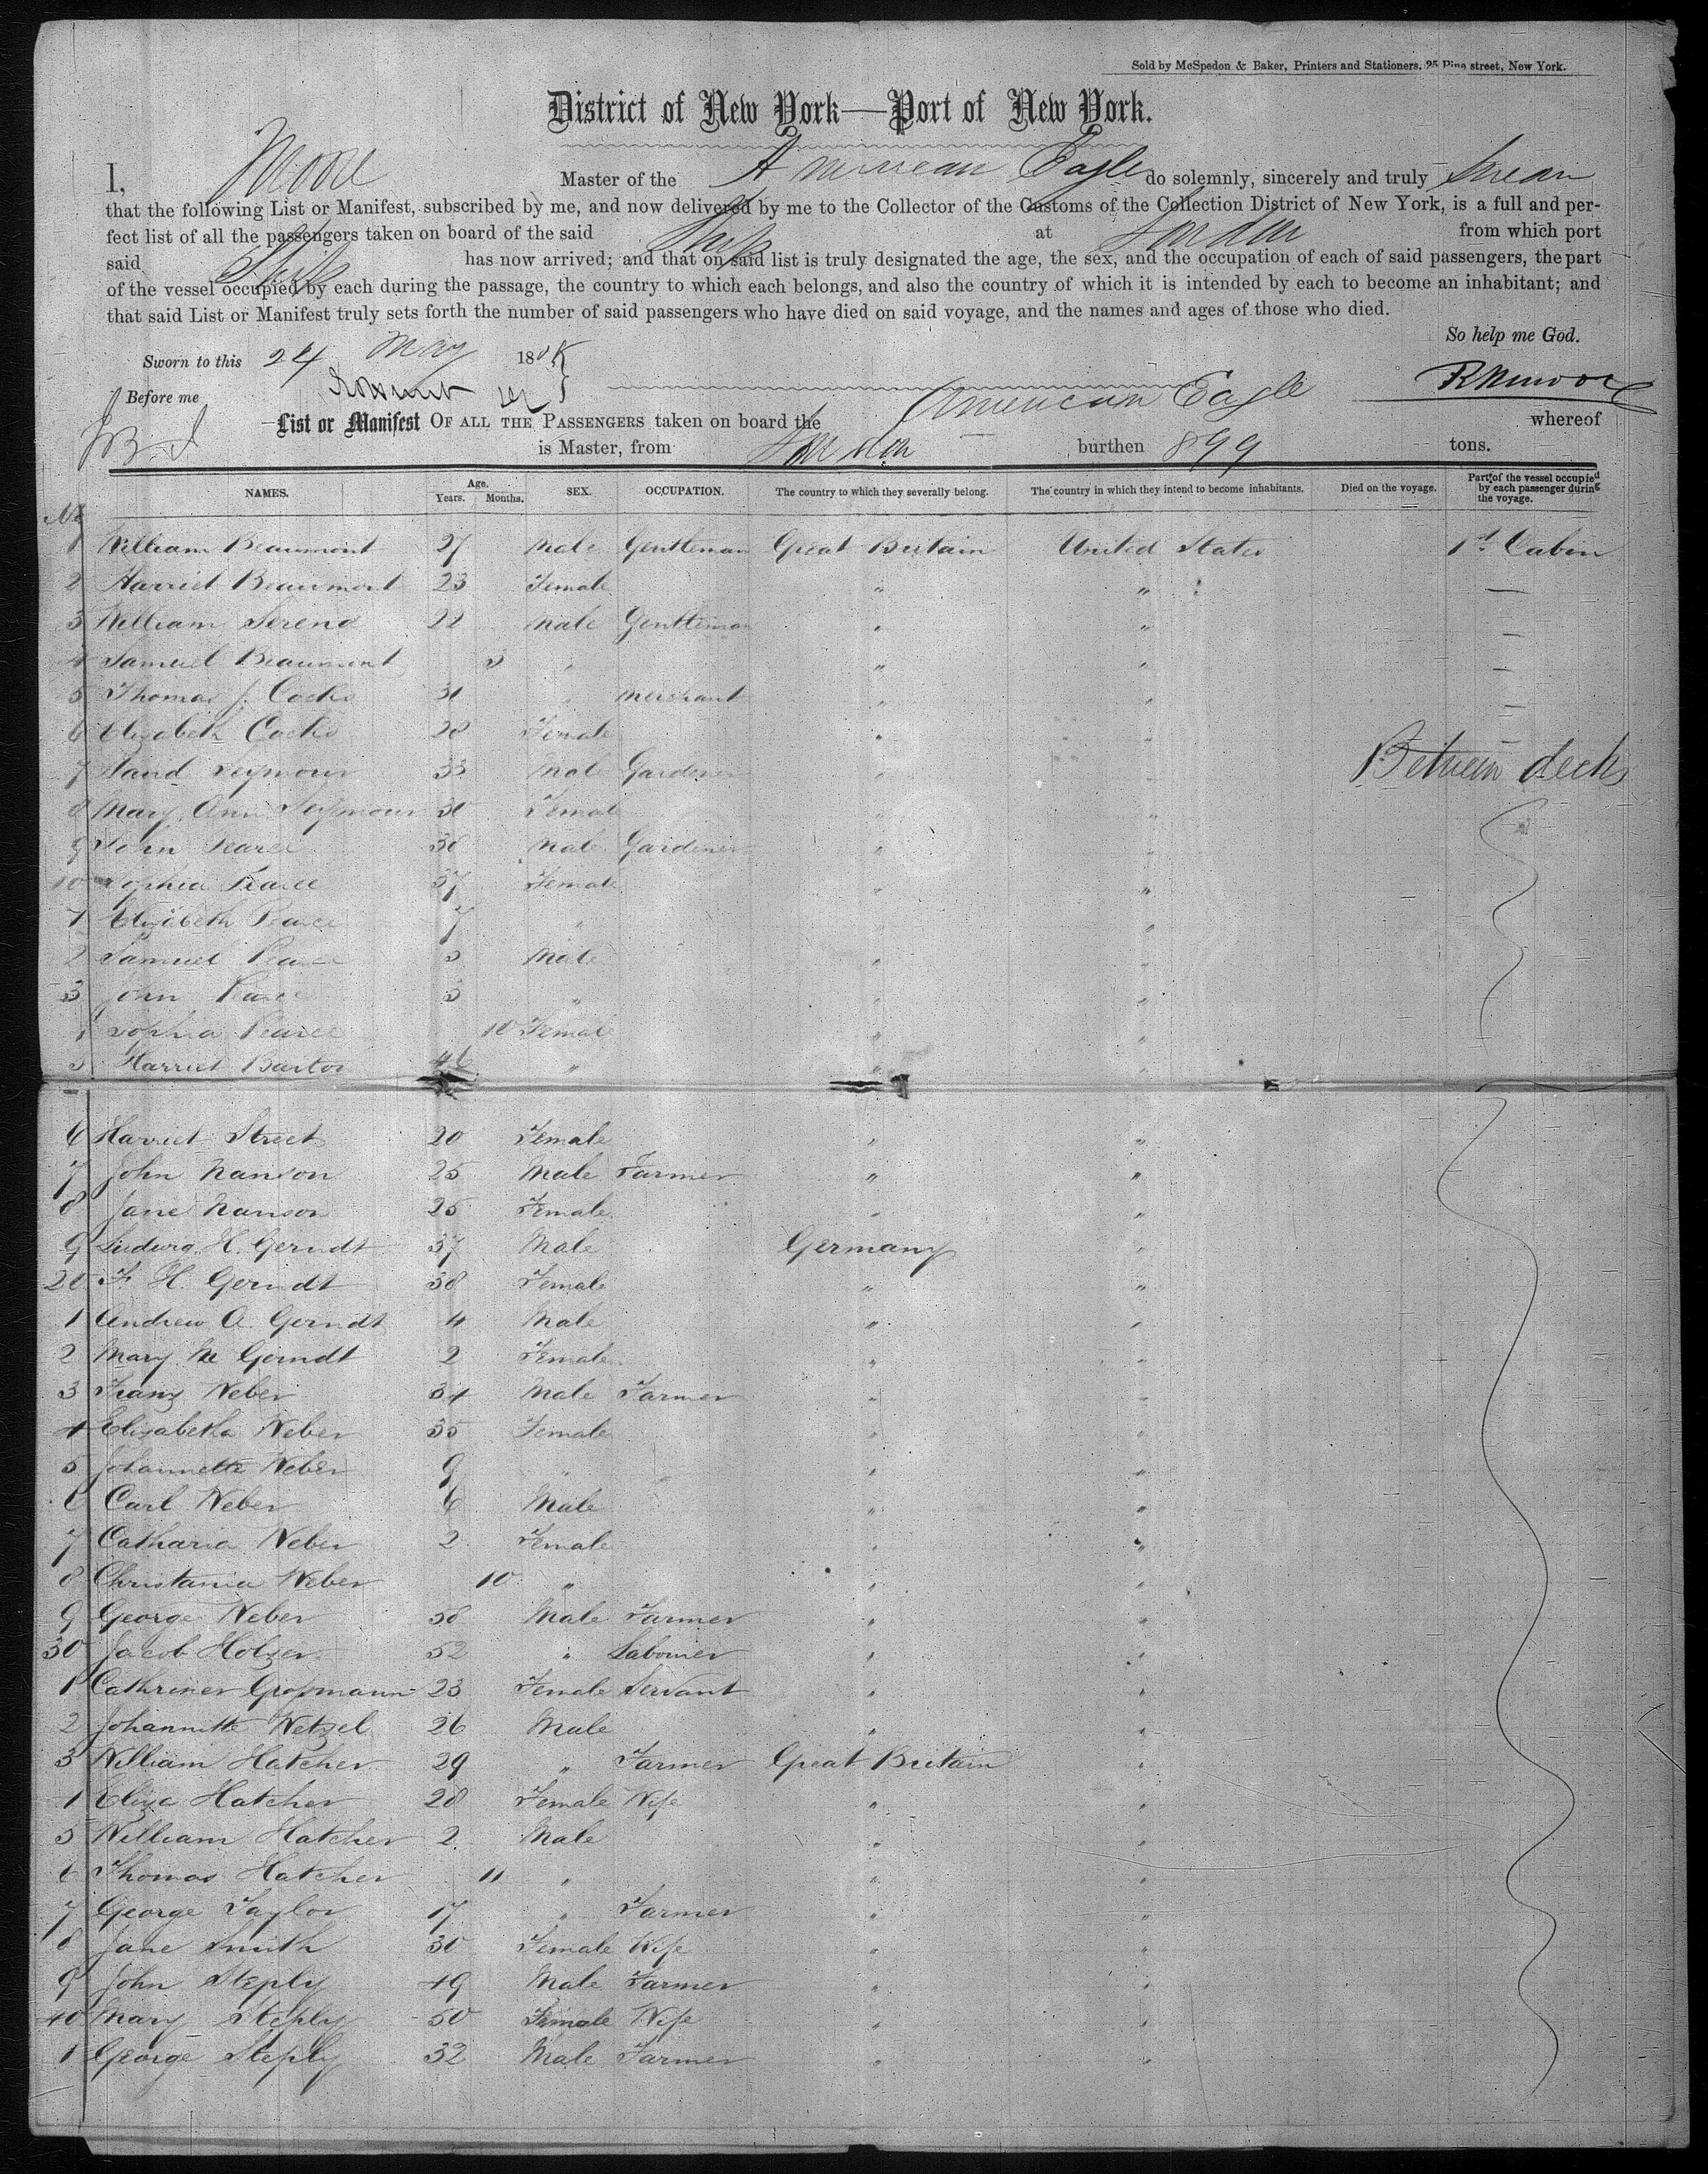 Sold by McSpedon & Baker, Printers and Stationers, 25 Pine street, New York.
District of New York—Port of New York.
I, Moore Master of the American Eagle do solemnly, sincerely and truly swear
that the following List or Manifest, subscribed by me, and now delivered by me to the Collector of the Customs of the Collection District of New York, is a full and per-
fect list of all the passengers taken on board of the said Ship at London from which port
said Ship has now arrived; and that on said list is truly designated the age, the sex, and the occupation of each of said passengers, the part
of the vessel occupied by each during the passage, the country to which each belongs, and also the country of which it is intended by each to become an inhabitant; and
that said List or Manifest truly sets forth the number of said passengers who have died on said voyage, and the names and ages of those who died.
So help me God.
Sworn to this 24 May 18
Before me
List or Manifest OF ALL THE PASSENGERS taken on board the American Eagle whereof
is Master, from London burthen 899 tons.
NAMES. Age. Years. Months. SEX. OCCUPATION. The country to which they severally belong. The country in which they intend to become inhabitants. Died on the voyage. Part of the vessel occupied by each passenger during the voyage.
No
1 William Beaumont 27 Male Gentleman Great Britain United States 1st Cabin
2 Harriet Beaumont 23 Female " " —
3 William Serend 22 Male Gentleman " " —
4 Samuel Beaumont 3 " " " —
5 Thomas J. Cocks 31 " Merchant " " —
6 Elizabeth Cocks 28 Female " " —
7 Seymour 33 Male Gardener " " Between decks
8 Mary Ann Seymour 30 Female " "
9 John Pearce 36 Male Gardener " "
10 Sophia Pearce 37 Female " "
1 Elizabeth Pearce 7 " " "
2 Samuel Pearce 5 Male " "
3 John Pearce 3 " " "
4 Sophia Pearce 10 Female " "
5 Harriet Burton 46 " " "
6 Harriet Street 20 Female " "
7 John Nanson 25 Male Farmer " "
8 Jane Nanson 25 Female " "
9 Ludwig H. Gerndt 37 Male Germany "
20 F. H. Gerndt 38 Female " "
1 Andrew A. Gerndt 4 Male " "
2 Mary M Gerndt 2 Female " "
3 Franz Weber 34 Male Farmer " "
4 Elizabetha Weber 35 Female " "
5 Johannette Weber 9 " " "
6 Carl Weber 6 Male " "
7 Catharia Weber 2 Female " "
8 Christania Weber 10 " " "
9 George Weber 58 Male Farmer " "
30 Jacob Holzer 52 " Labourer " "
1 Cathriner Grossmann 23 Female Servant " "
2 Johannitte Wetzel 26 Male " "
3 William Hatcher 29 " Farmer Great Britain "
4 Eliza Hatcher 28 Female Wife " "
5 William Hatcher 2 Male " "
6 Thomas Hatcher 11 " " "
7 George Taylor 17 " Farmer " "
8 Jane Smith 30 Female Wife " "
9 John Steply 49 Male Farmer " "
40 Mary Steply 50 Female Wife " "
1 George Steply 32 Male Farmer " "